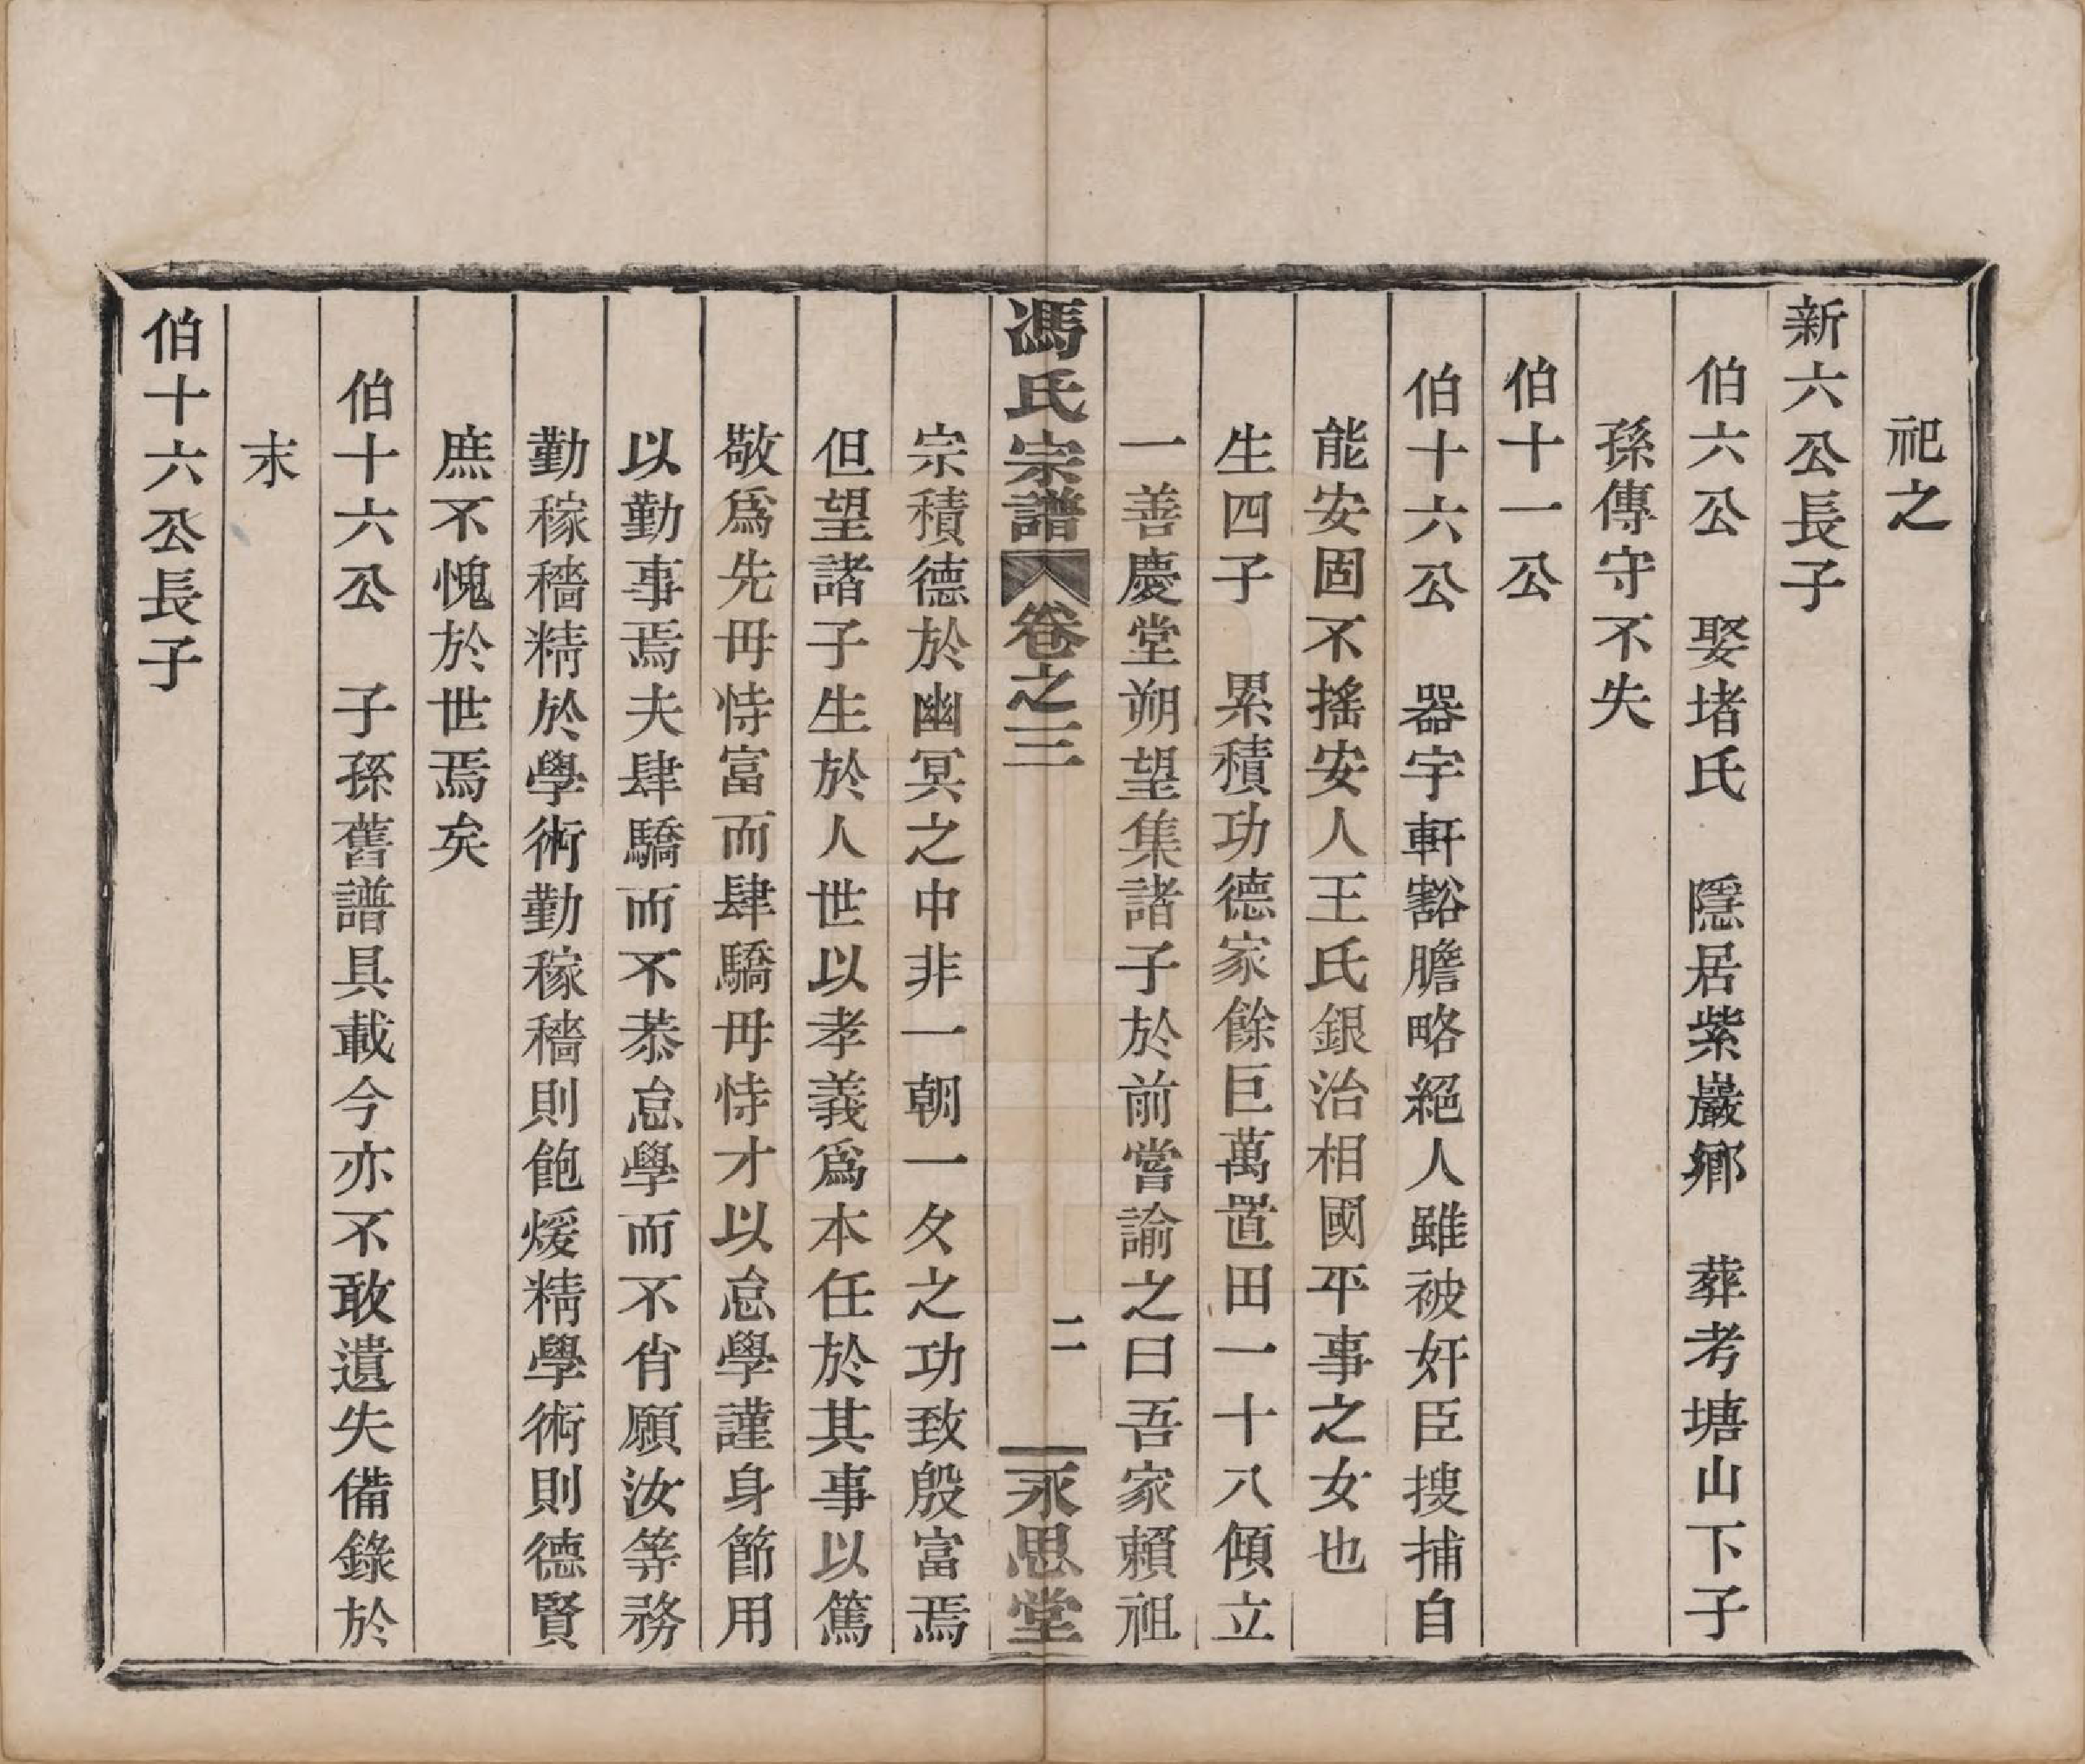 祀之
新六公長子
伯六公　娶堵氏　隱居紫巖鄉　葬考塘山下子
孫傳守不失
伯十一公
伯十六公　器宇軒豁膽略絕人雖被奸臣搜捕自
能安固不搖安人王氏銀治相國平事之女也
生四子　累積功德家餘巨萬置田一十八傾立
一善慶堂朔望集諸子於前嘗諭之曰吾家賴祖
馮氏宗譜　卷之三　二　永思堂
宗積德於幽冥之中非一朝一夂之功致殷富焉
但望諸子生於人世以孝義爲本任於其事以篤
敬爲先毋恃富而肆驕毋恃才以怠學謹身節用
以勤事焉夫肆驕而不恭怠學而不肖願汝等務
勤稼穡精於學術勤稼穡則飽煖精學術則德賢
庶不愧於世焉矣
伯十六公　子孫舊譜具載今亦不敢遺失備錄於
末
伯十六公長子